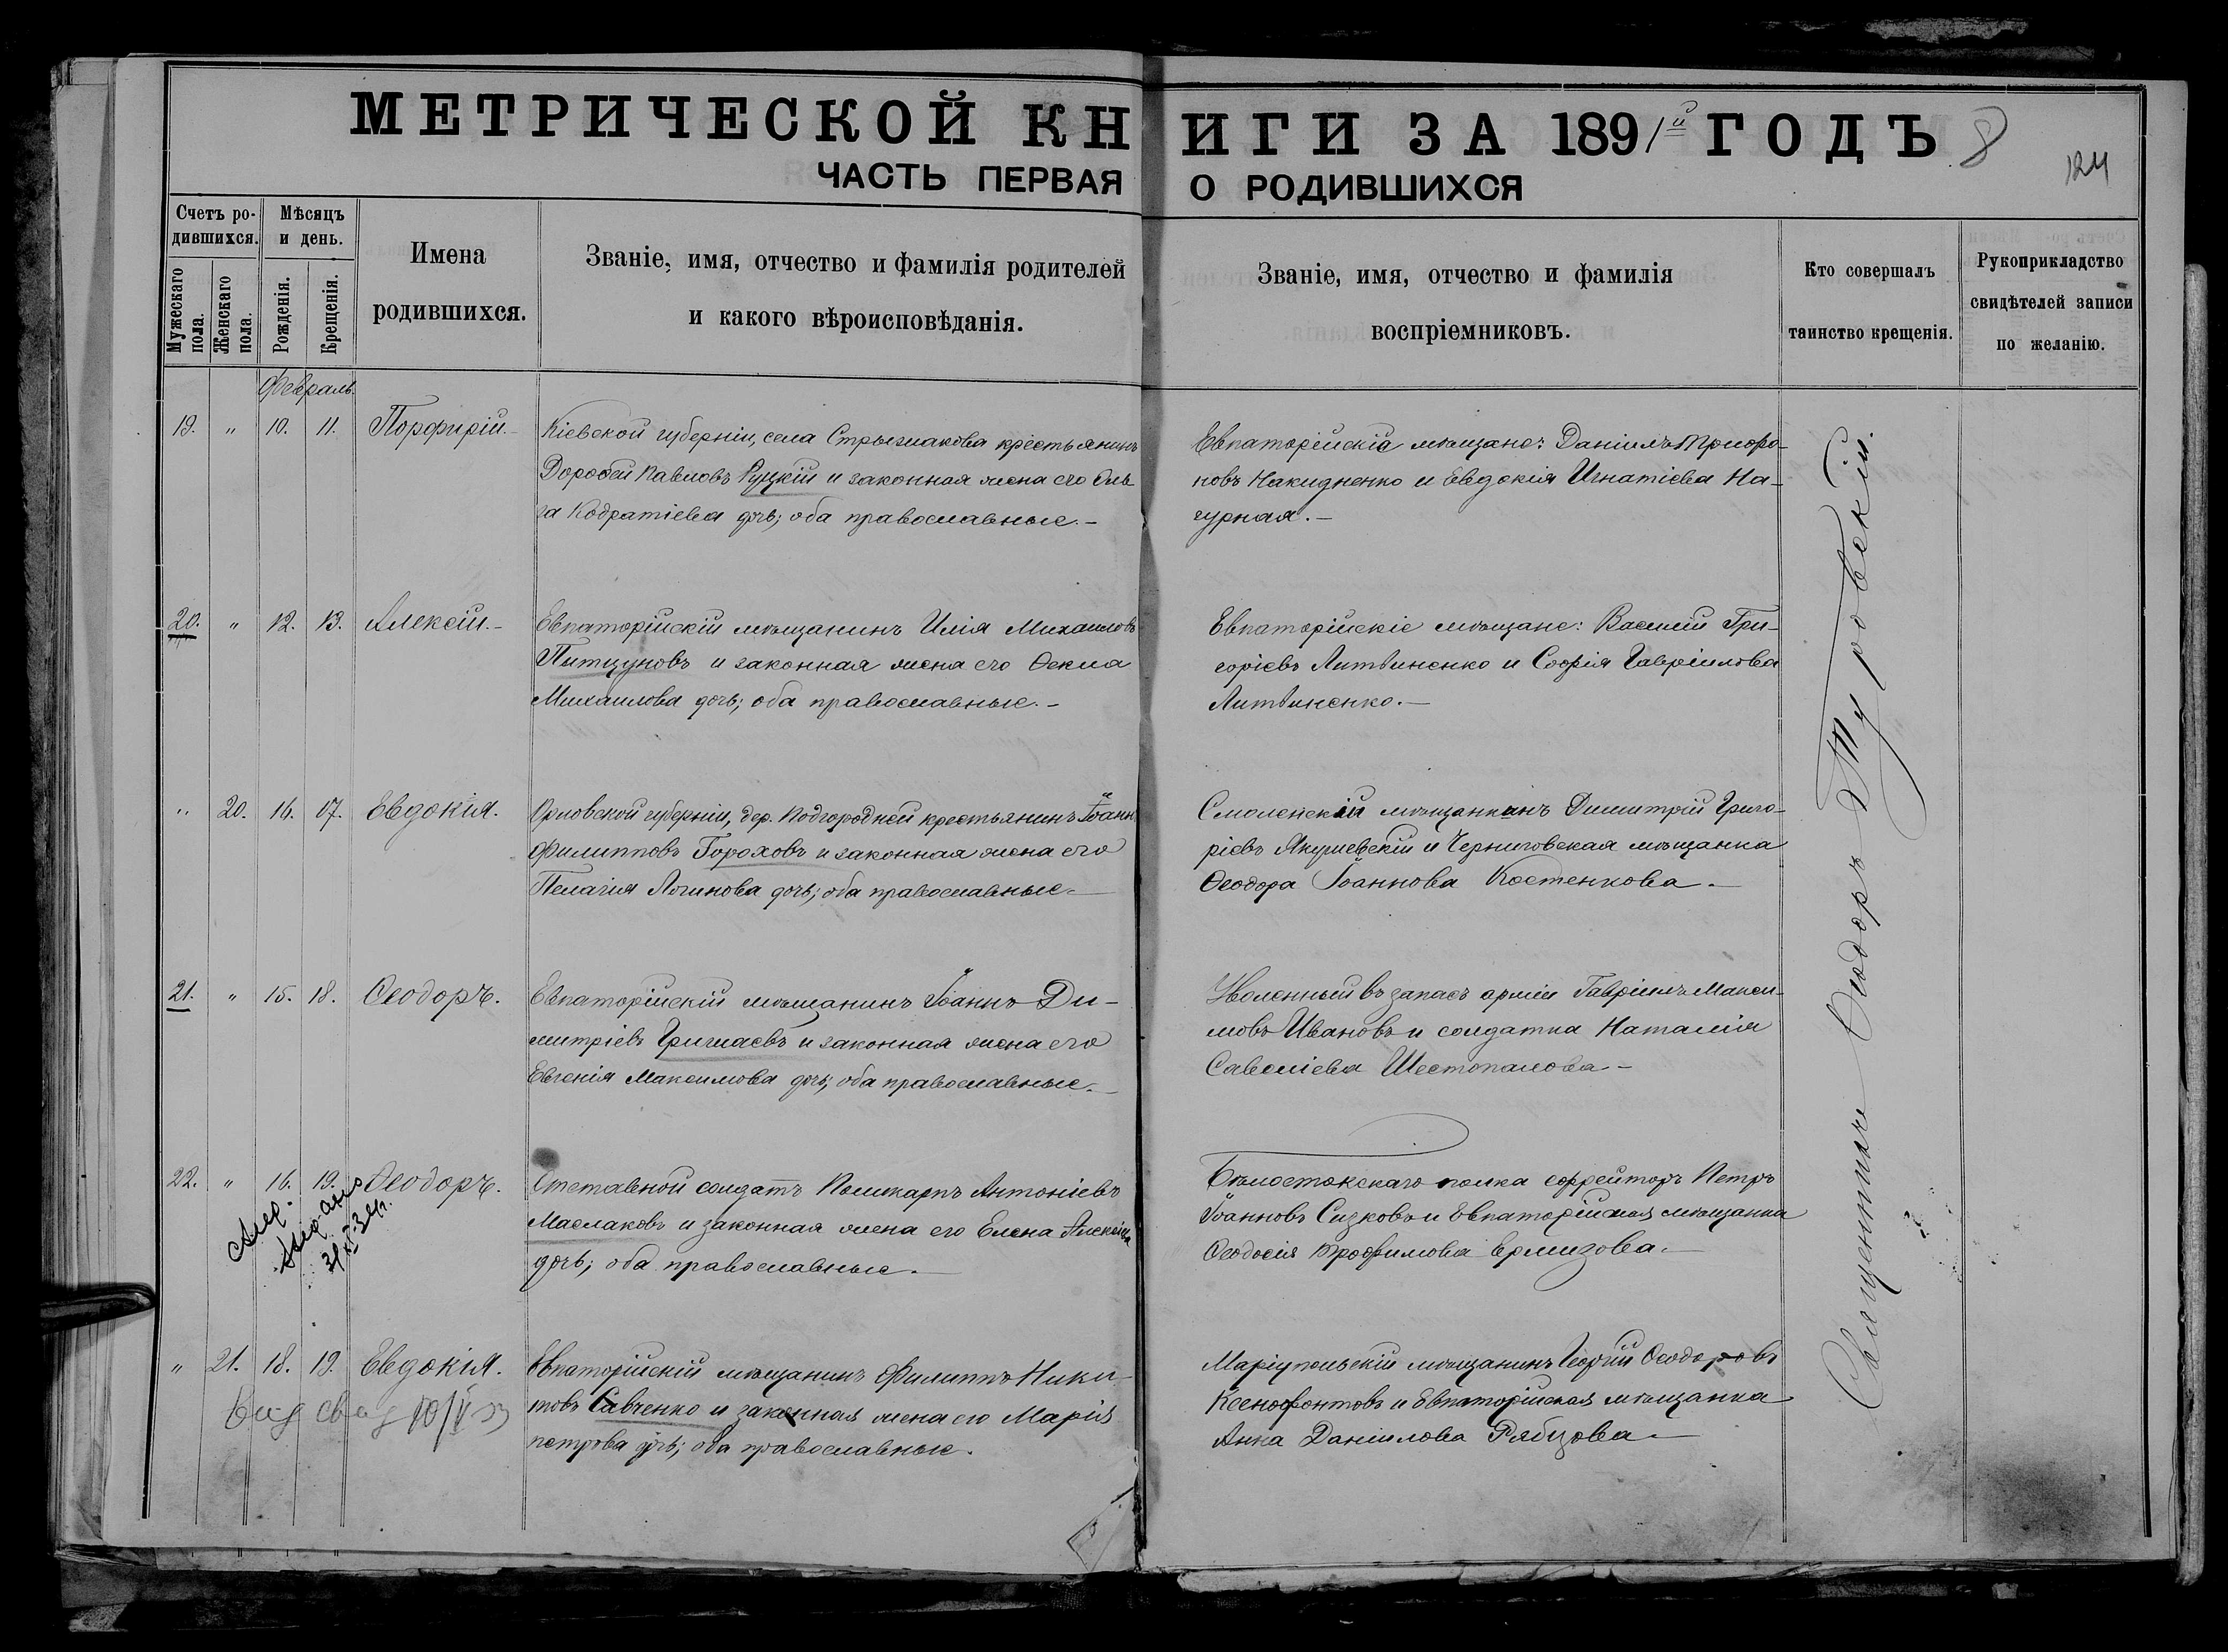 МЕТРИЧЕСКОЙ КНИГИ ЗА 1891й ГОДЪ 8
124
ЧАСТЬ ПЕРВАЯ О РОДИВШИХСЯ
Счетъ ро-
дившихся.
Мужескаго пола.
Женскаго пола.
Мѣсяцъ
и день.
Рожденія.
Крещенія.
Имена
родившихся.
Званіе, имя, отчество и фамилія родителей
и какого вѣроисповѣданія.
Званіе, имя, отчество и фамилія
воспріемниковъ.
Кто совершалъ
таинство крещенія.
Рукоприкладство
свидѣтелей записи
по желанію.
Февраль.
19. " 10. 11. Порфирій.-
Кіевской губерніи, села крестьянинъ
Дорофей Павловъ Руцкій и законная жена его Оль
га Кодратіева дочь; оба православные.-
Евпаторійскіе мѣщане: Даніилъ
новъ Накидненко и Евдокія Игнатіева На-
гурная.-
20. " 12. 13. Алексій.-
Евпаторійскій мѣщанинъ Илія Михаиловъ
Питцуновъ и законная жена его Ѳекла
Михаилова дочь; оба православные.-
Евпаторійскіе мѣщане: Василій Гри-
горіевъ Литвиненко и Софія Гавріилова
Литвиненко.-
" 20. 16. 17. Евдокія.
Орловской губерніи, дер. Подгородней крестьянинъ Іоаннъ
Филипповъ Гороховъ и законная жена его
Пелагія Логинова дочь; оба православные.-
Смоленскій мѣщанинъ Димитрій Григо-
ріевъ Якушевскій и Черниговская мѣщанка
Ѳеодора Іоаннова Костенкова.-
21. " 15. 18. Ѳеодоръ.
Евпаторійскій мѣщанинъ Іоаннъ Ди-
митріевъ Григлаевъ и законная жена его
Евгенія Максимова дочь; оба православные.-
Уволенный въ запасъ арміи Гавріилъ Макси-
мовъ Ивановъ и солдатка Наталія
Савеліева Шестопалова.-
22. " 16. 19. Ѳеодоръ.
Отставной солдатъ Поликарпъ Антоніевъ
Маслаковъ и законная жена его Елена Алексіева
дочь; оба православные.-
Бѣлостокскаго полка ефрейторъ Петръ
Іоанновъ Сизковъ и Евпаторійская мѣщанка
Ѳеодосія Трофимова Ермизова.-
" 21. 18. 19. Евдокія.
Евпаторійскій мѣщанинъ Филиппъ Ники-
товъ Савченко и законная жена его Марія
Петрова дочь; оба православные.
Маріупольскій мѣщанинъ Георгій Ѳеодоровъ
Ксенофонтовъ и Евпаторійская мѣщанка
Анна Даніилова Рябцова.-
Священникъ Ѳеодоръ Туровскій.